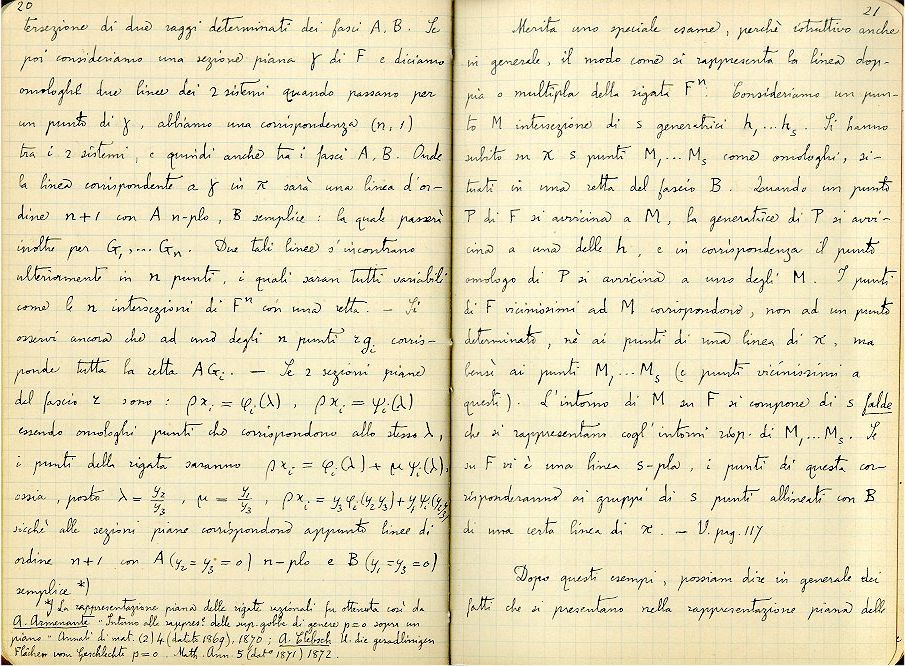 20
tersezione di due raggi determinati dei fasci A, B. Se
poi consideriamo una sezione piana γ di F e diciamo
omologhe due linee dei 2 sistemi quando passano per
un punto di γ, abbiamo una corrispondenza (n, 1)
tra i 2 sistemi, e quindi anche tra i fasci A, B. Onde
la linea corrispondente a γ in π sarà una linea d'or-
dine n+1 con A n-plo, B semplice: la quale passerà
inoltre per G₁,... Gₙ. Due tali linee s'incontrano
ulteriormente in n punti, i quali saran tutti variabili
come le n intersezioni di Fⁿ con una retta. — Si
osservi ancora che ad uno degli n punti rgᵢ corris-
ponde tutta la retta AGᵢ. — Se 2 sezioni piane
del fascio r sono: ρxᵢ = φᵢ(λ), ρxᵢ = ψᵢ(λ)
essendo omologhi punti che corrispondono allo stesso λ,
i punti della rigata saranno ρxᵢ = φᵢ(λ) + μ ψᵢ(λ),
ossia, posto λ = y₂/y₃, μ = y₁/y₃, ρxᵢ = y₃φᵢ(y₂y₃)+y₁ψᵢ(y₂y₃)
sicchè alle sezioni piane corrispondono appunto linee di
ordine n+1 con A (y₂=y₃=0) n-plo e B (y₁=y₃=0)
semplice *)
*) La rappresentazione piana delle rigate razionali fu ottenuta così da
A. Armenante "Intorno alla rappres.ᵉ delle sup. gobbe di genere p=0 sopra un
piano" Annali di mat. (2) 4 (datato 1869), 1870; A. Clebsch U. die geradlinigen
Flächen vom Geschlechte p=0. Math. Ann. 5 (datᵒ 1871) 1872.
21
Merita uno speciale esame, perchè istruttivo anche
in generale, il modo come si rappresenta la linea dop-
pia o multipla della rigata Fⁿ. Consideriamo un pun-
to M intersezione di s generatrici h₁...hₛ. Si hanno
subito su π s punti M₁...Mₛ come omologhi, si-
tuati in una retta del fascio B. Quando un punto
P di F si avvicina a M, la generatrice di P si avvi-
cina a una delle h, e in corrispondenza il punto
omologo di P si avvicina a uno degli M. I punti
di F vicinissimi ad M corrispondono, non ad un punto
determinato, nè ai punti di una linea di π, ma
bensì ai punti M₁...Mₛ (e punti vicinissimi a
questi). L'intorno di M su F si compone di s falde
che si rappresentano cogl'intorni risp. di M₁...Mₛ. Se
su F vi è una linea s-pla, i punti di questa cor-
risponderanno ai gruppi di s punti allineati con B
di una certa linea di π. — V. pag. 117
Dopo questi esempi, possiam dire in generale dei
fatti che si presentano nella rappresentazione piana delle